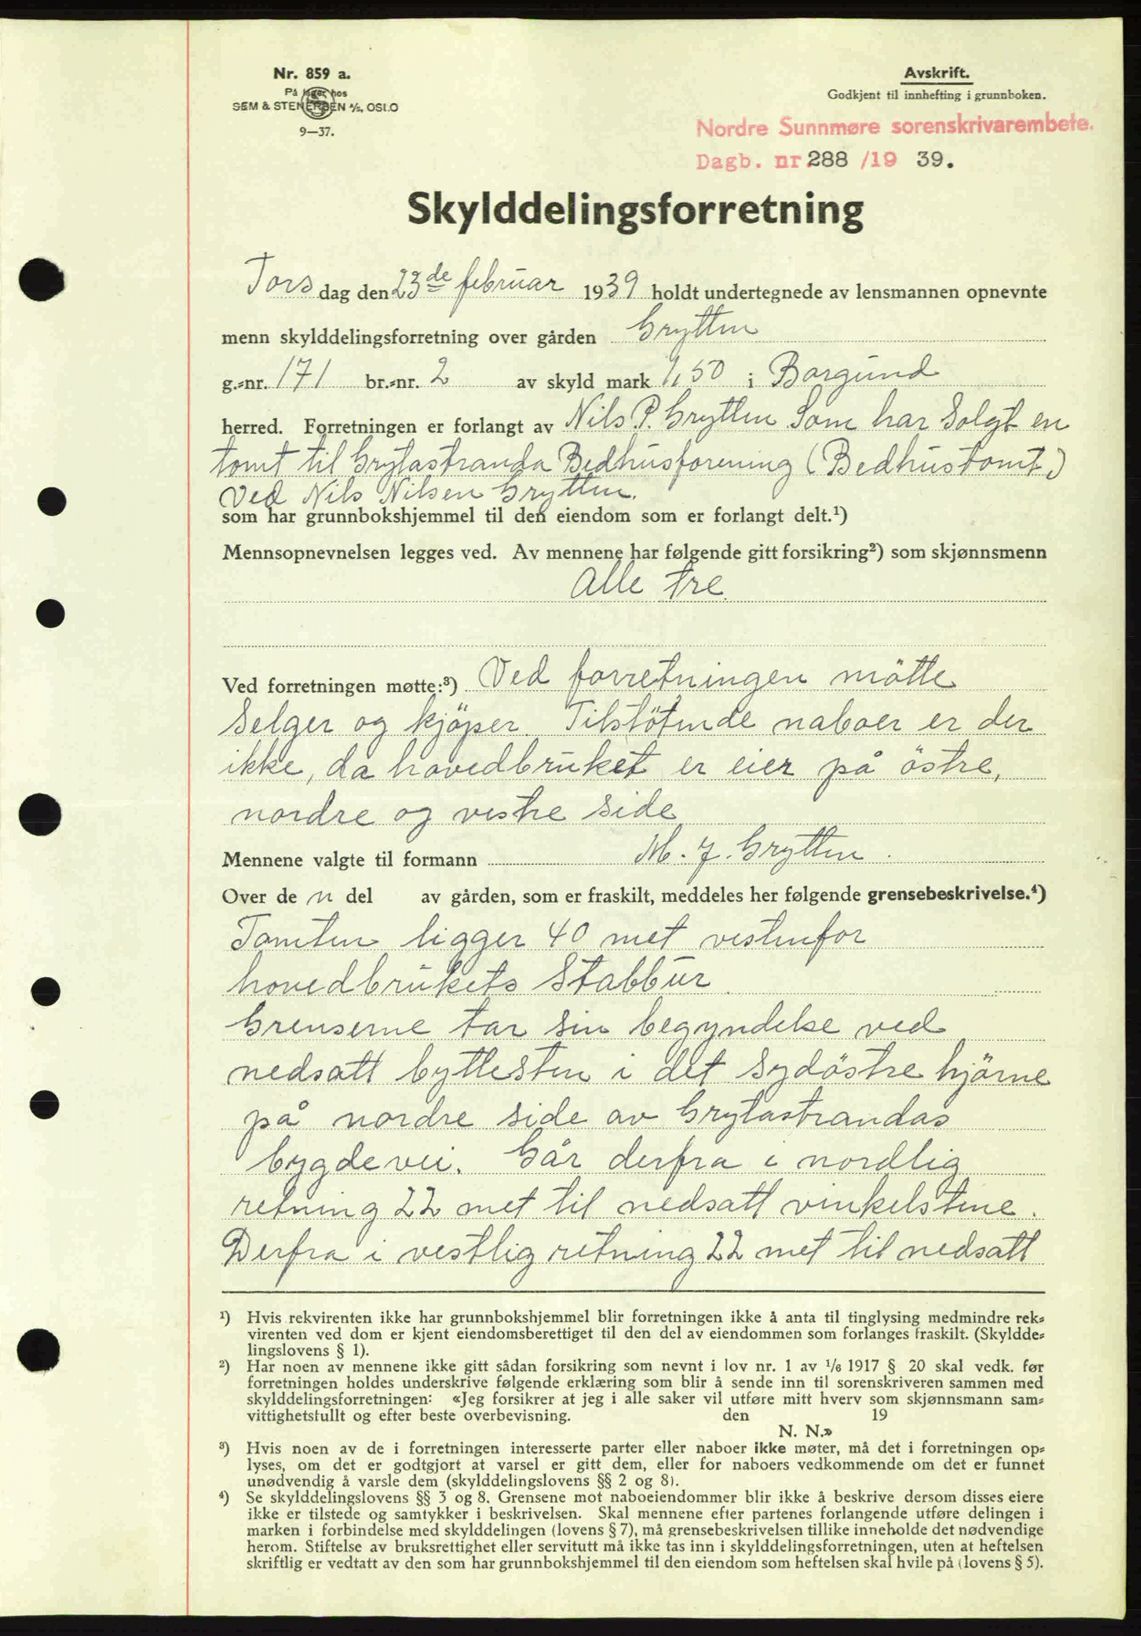 Nr. 859 a.
På lager hos
SEM & STENERSEN A/S, OSLO
9—37.
Avskrift.
Godkjent til innhefting i grunnboken.
Nordre Sunnmøre sorenskrivarembete.
Dagb. nr 288 /19 39.
Skylddelingsforretning
Tors dag den 23de februar 1939 holdt undertegnede av lensmannen opnevnte
menn skylddelingsforretning over gården Grytten
g.-nr. 171 br.-nr. 2 av skyld mark 1,50 i Borgund
herred. Forretningen er forlangt av Nils P. Grytten Som har Solgt en
tomt til Grytastranda Bedhusforening (Bedhustomt)
Ved Nils Nilsen Grytten.
som har grunnbokshjemmel til den eiendom som er forlangt delt.¹)
Mennsopnevnelsen legges ved. Av mennene har følgende gitt forsikring²) som skjønnsmenn
Alle tre
Ved forretningen møtte:³) Ved forretningen mötte
Selger og kjöper. Tilstötende naboer er der
ikke, da hovedbruket er eier på östre,
nordre og vestre side
Mennene valgte til formann M. J. Grytten.
Over de n del av gården, som er fraskilt, meddeles her følgende grensebeskrivelse.⁴)
Tomten ligger 40 met vestenfor
hovedbrukets Stabbur.
Grenserne tar sin begyndelse ved
nedsatt byttesten i det sydöstre hjörne
på nordre side av Grytastrandas
bygdevei. Går derfra i nordlig
retning 22 met til nedsatt vinkelstene.
Derfra i vestlig retning 22 met til nedsatt
¹) Hvis rekvirenten ikke har grunnbokshjemmel blir forretningen ikke å anta til tinglysing medmindre rek-
virenten ved dom er kjent eiendomsberettiget til den del av eiendommen som forlanges fraskilt. (Skyldde-
lingslovens § 1).
²) Har noen av mennene ikke gitt sådan forsikring som nevnt i lov nr. 1 av 1/6 1917 § 20 skal vedk. før
forretningen holdes underskrive følgende erklæring som blir å sende inn til sorenskriveren sammen med
skylddelingsforretningen: «Jeg forsikrer at jeg i alle saker vil utføre mitt hverv som skjønnsmann sam-
vittighetsfullt og efter beste overbevisning. den 19
N. N.»
³) Hvis noen av de i forretningen interesserte parter eller naboer ikke møter, må det i forretningen op-
lyses, om det er godtgjort at varsel er gitt dem, eller for naboers vedkommende om det er funnet
unødvendig å varsle dem (skylddelingslovens §§ 2 og 8).
⁴) Se skylddelingslovens §§ 3 og 8. Grensene mot naboeiendommer blir ikke å beskrive dersom disses eiere
ikke er tilstede og samtykker i beskrivelsen. Skal mennene efter partenes forlangende utføre delingen i
marken i forbindelse med skylddelingen (lovens § 7), må grensebeskrivelsen tillike inneholde det nødvendige
herom. Stiftelse av bruksrettighet eller servitutt må ikke tas inn i skylddelingsforretningen, uten at heftelsen
skriftlig er vedtatt av den som har grunnbokshjemmel til den eiendom som heftelsen skal hvile på (lovens § 5).